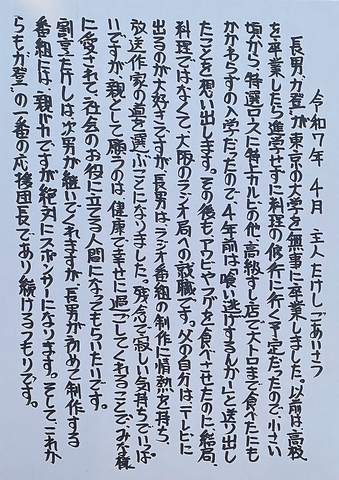 令和7年 4月 主人たけしごあいさつ
長男、力登が東京の大学を無事に卒業しました。以前は、高校
を卒業したら進学せずに料理の修行に行く予定だったので小さい
頃から、特選ロースに特上カルビの他、高級すし店で大トロまで食べたにも
かかわらずの入学だったので、4年前は「喰い逃げするんかー」と送り出し
たことを想い出します。その後も、アワビやフグを食べさせたのに、結局、
料理ではなくて、大阪のラジオ局への就職です。父の自分はテレビに
出るのが大好きですが、長男は、ラジオ番組の制作に情熱を持ち、
放送作家の道を選ぶことになりました。残念で寂しい気持ちでいっぱ
いですが、親として願うのは、健康で幸せに過ごしてくれることで、みな様
に愛されて、社会のお役に立てる人間になってもらいたいです。
割烹たけしは、次男が継いでくれますが、長男が初めて制作する
番組には、親バカですが、絶対にスポンサーになります。そして、これか
らも力登の一番の応援団長であり続けるつもりです。